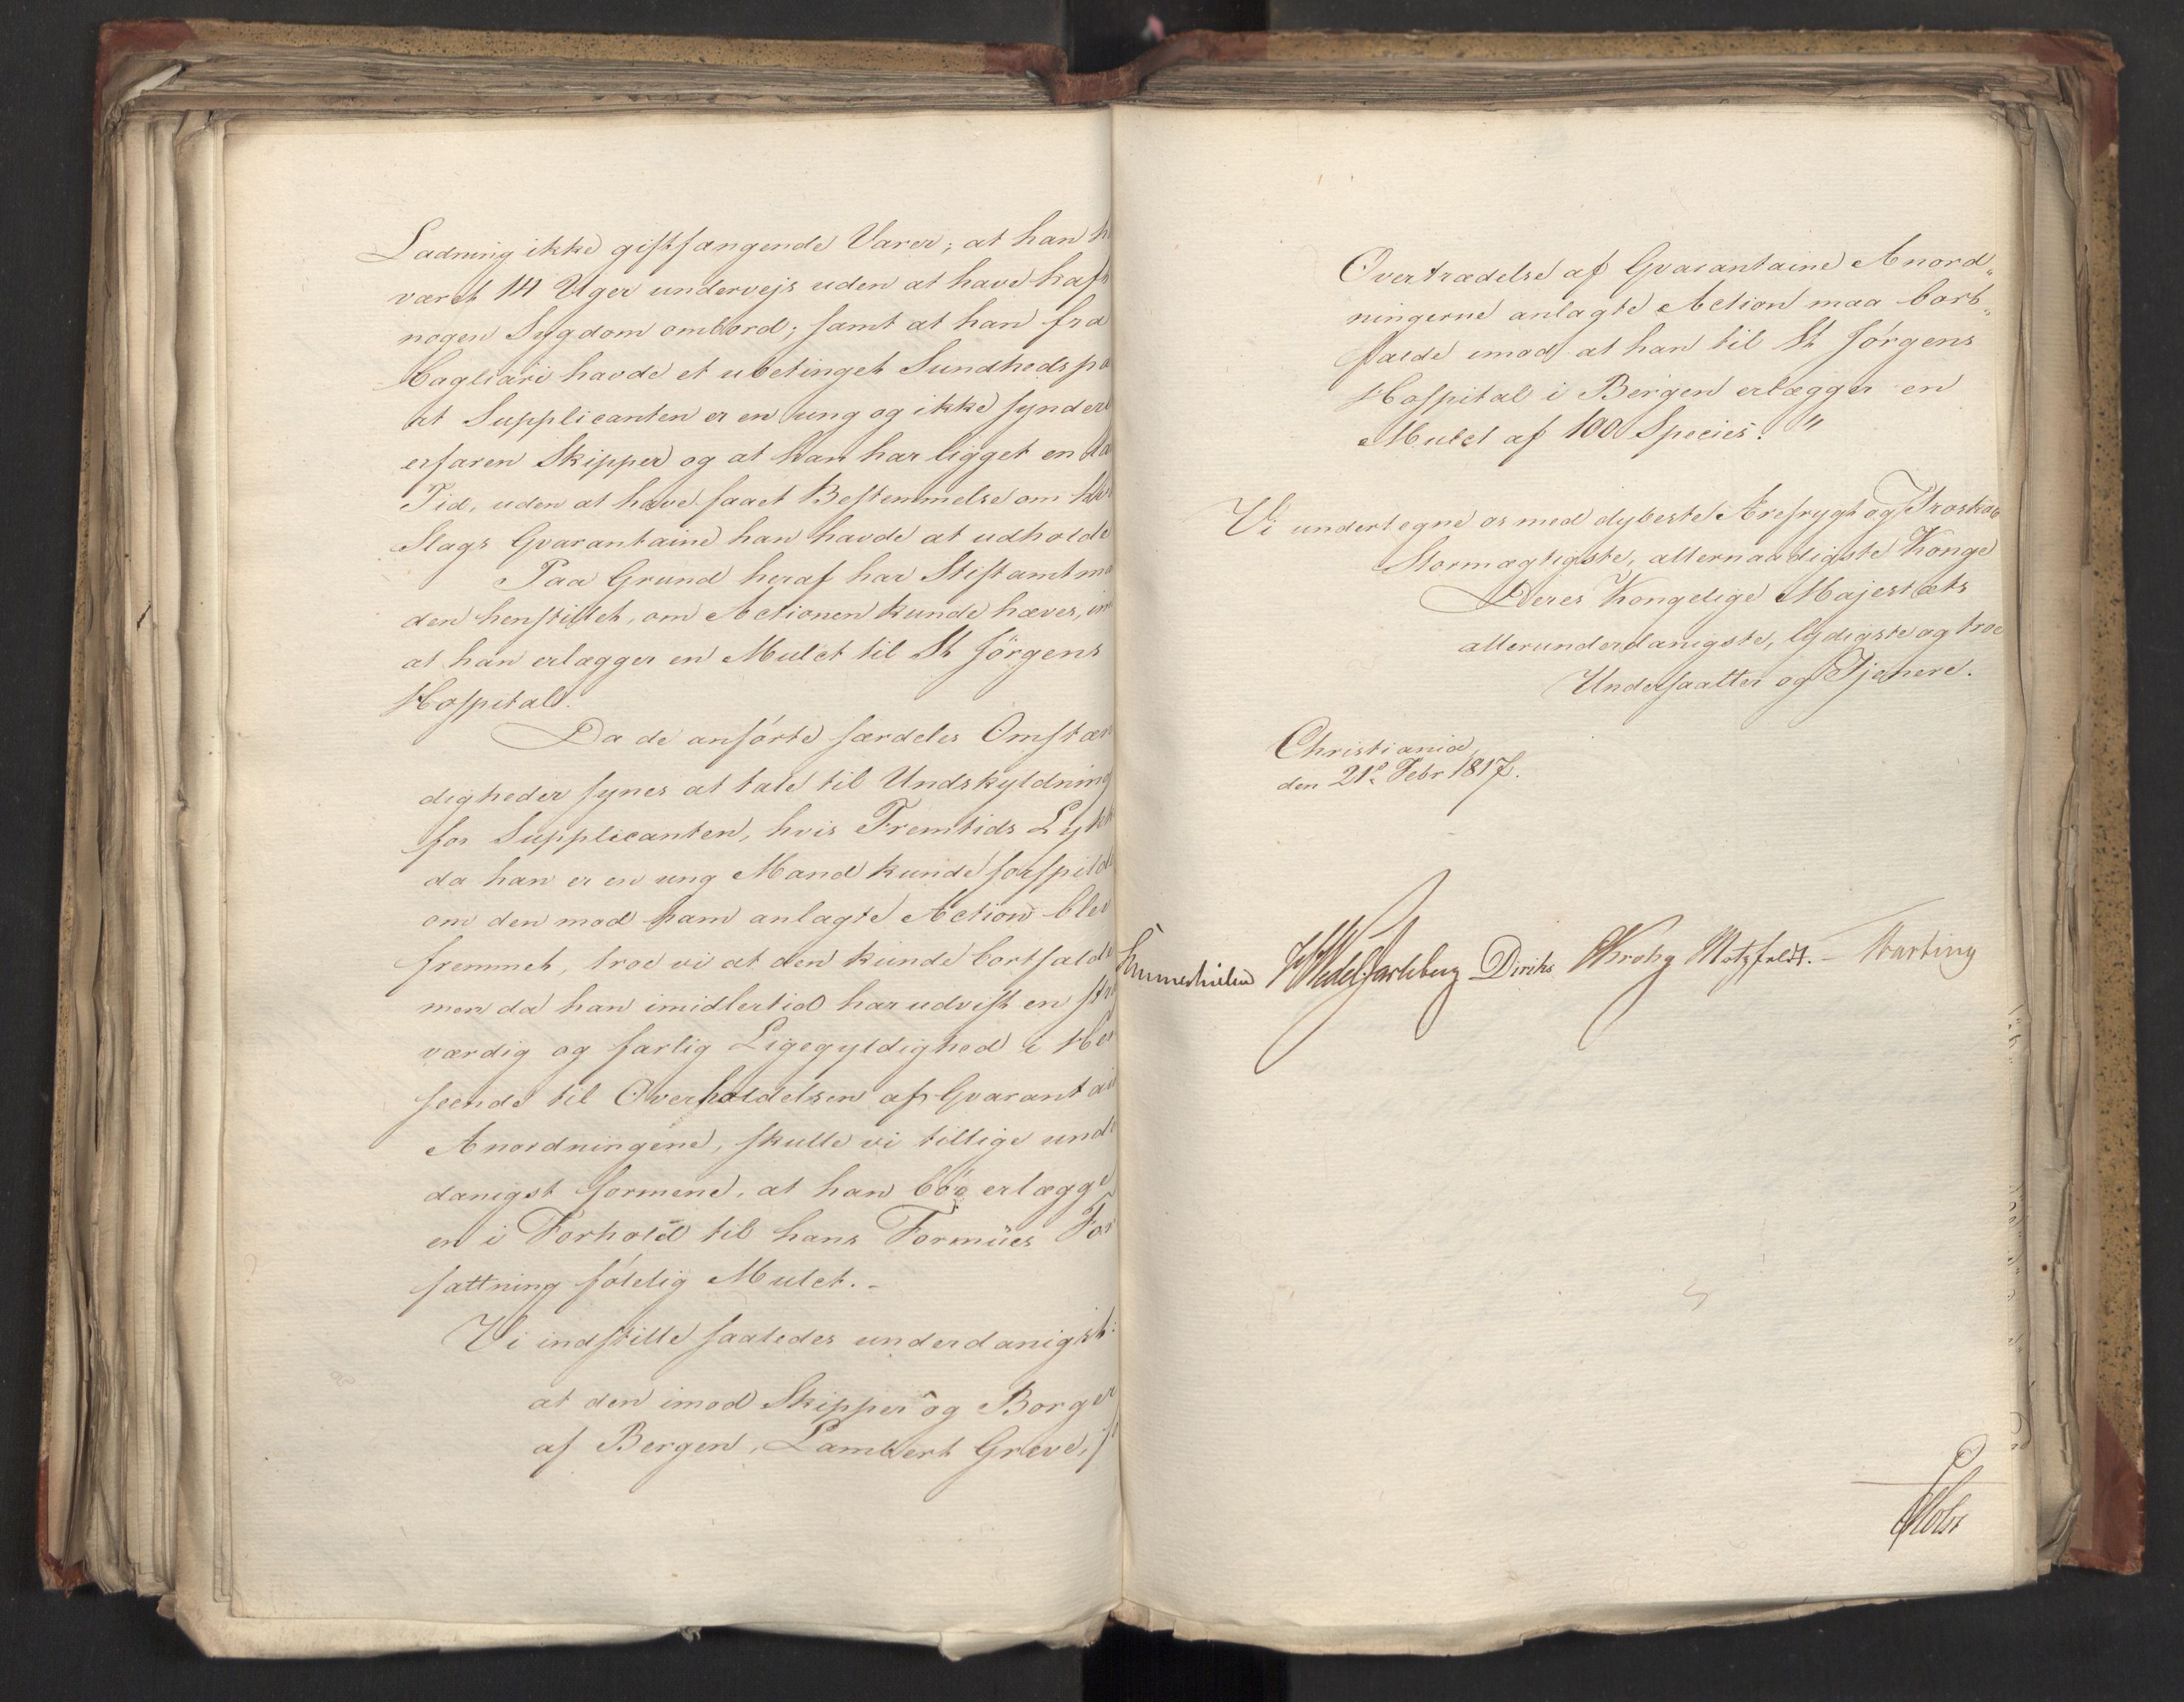 Ladning ikke giftfangende Varer; at han h
været 14 Uger undervejs uden at have haft
nogen Sygdom ombord; samt at han fra
Cagliari havde et ubetinget Sundhedspa
at Supplicanten er en ung og ikke synderl
erfaren Skipper og at han har ligget en
Tid, uden at have faaet Bestemmelse om
Slags Qvarantaine han havde at udholde
Paa Grund heraf har Stiftamtma
den henstillet, om Actionen kunde hæves, im
at han erlægger en Mulct til St Jörgens
Hospital.
Da de anförte særdeles Omstæn
digheder synes at tale til Undskyldning
for Supplicanten, hvis Fremtids Lykk
da han er en ung Mand kunde forspilde
om den mod ham anlagte Action blev
fremmet, troe vi at den kunde bortfalde
men da han imidlertid har udvist en str
værdig og farlig Ligegyldighed i Hen
seende til Overholdelsen af Qvarantai
Anordningene, skulle vi tillige unde
danigst formene, at han bör erlægge
en i Forhold til hans Formues For
fattning fölelig Mulct. -
Vi indstille saaledes underdanigst:
at den imod Skipper og Borger
af Bergen, Lambert Greve, f
Overtrædelse af Qvarantaine Anord„
ningerne anlagte Action maa bort„
falde imod at han til St Jörgens
Hospital i Bergen erlægger en
Mulct af 100 Species."
Vi undertegne os med dybeste Ærefrygt og Troskab
Stormægtigste, allernaadigste Konge
Deres Kongelige Majestæts
allerunderdanigste, lydigste og troe
Undersaatter og Tjenere.
Christiania,
den 21de Febr 1817.
Sommerhielm HWedel Jarlsberg Diriks Krohg Motzfeldt. - Harbing